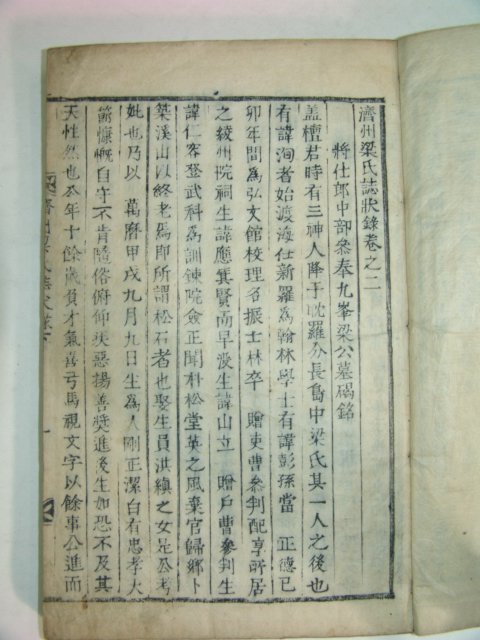 濟州梁氏誌狀錄卷之二
將仕郎中部參奉九峯梁公墓碣銘
盖檀君時有三神人降于耽羅分長島中梁氏其一人之後也
有諱洵者始渡海仕新羅爲翰林學士有諱彭孫當 正德己
卯年間爲弘文館校理名振士林卒 贈吏曹參判配享所居
之綾州院祠生諱應箕賢而早沒生諱山立 贈戶曹參判生
諱仁容登武科爲訓鍊院僉正聞朴松堂英之風棄官歸鄕卜
築溪山以終老焉即所謂松石者也娶生員洪縝之女是公考
妣也乃以 萬曆甲戌九月九日生爲人剛正潔白有忠孝大
節慷慨自守不肯隨俗俯仰疾惡揚善獎進後生如恐不及其
天性然也公年十餘歲負才氣喜弓馬視文字以餘事公進而